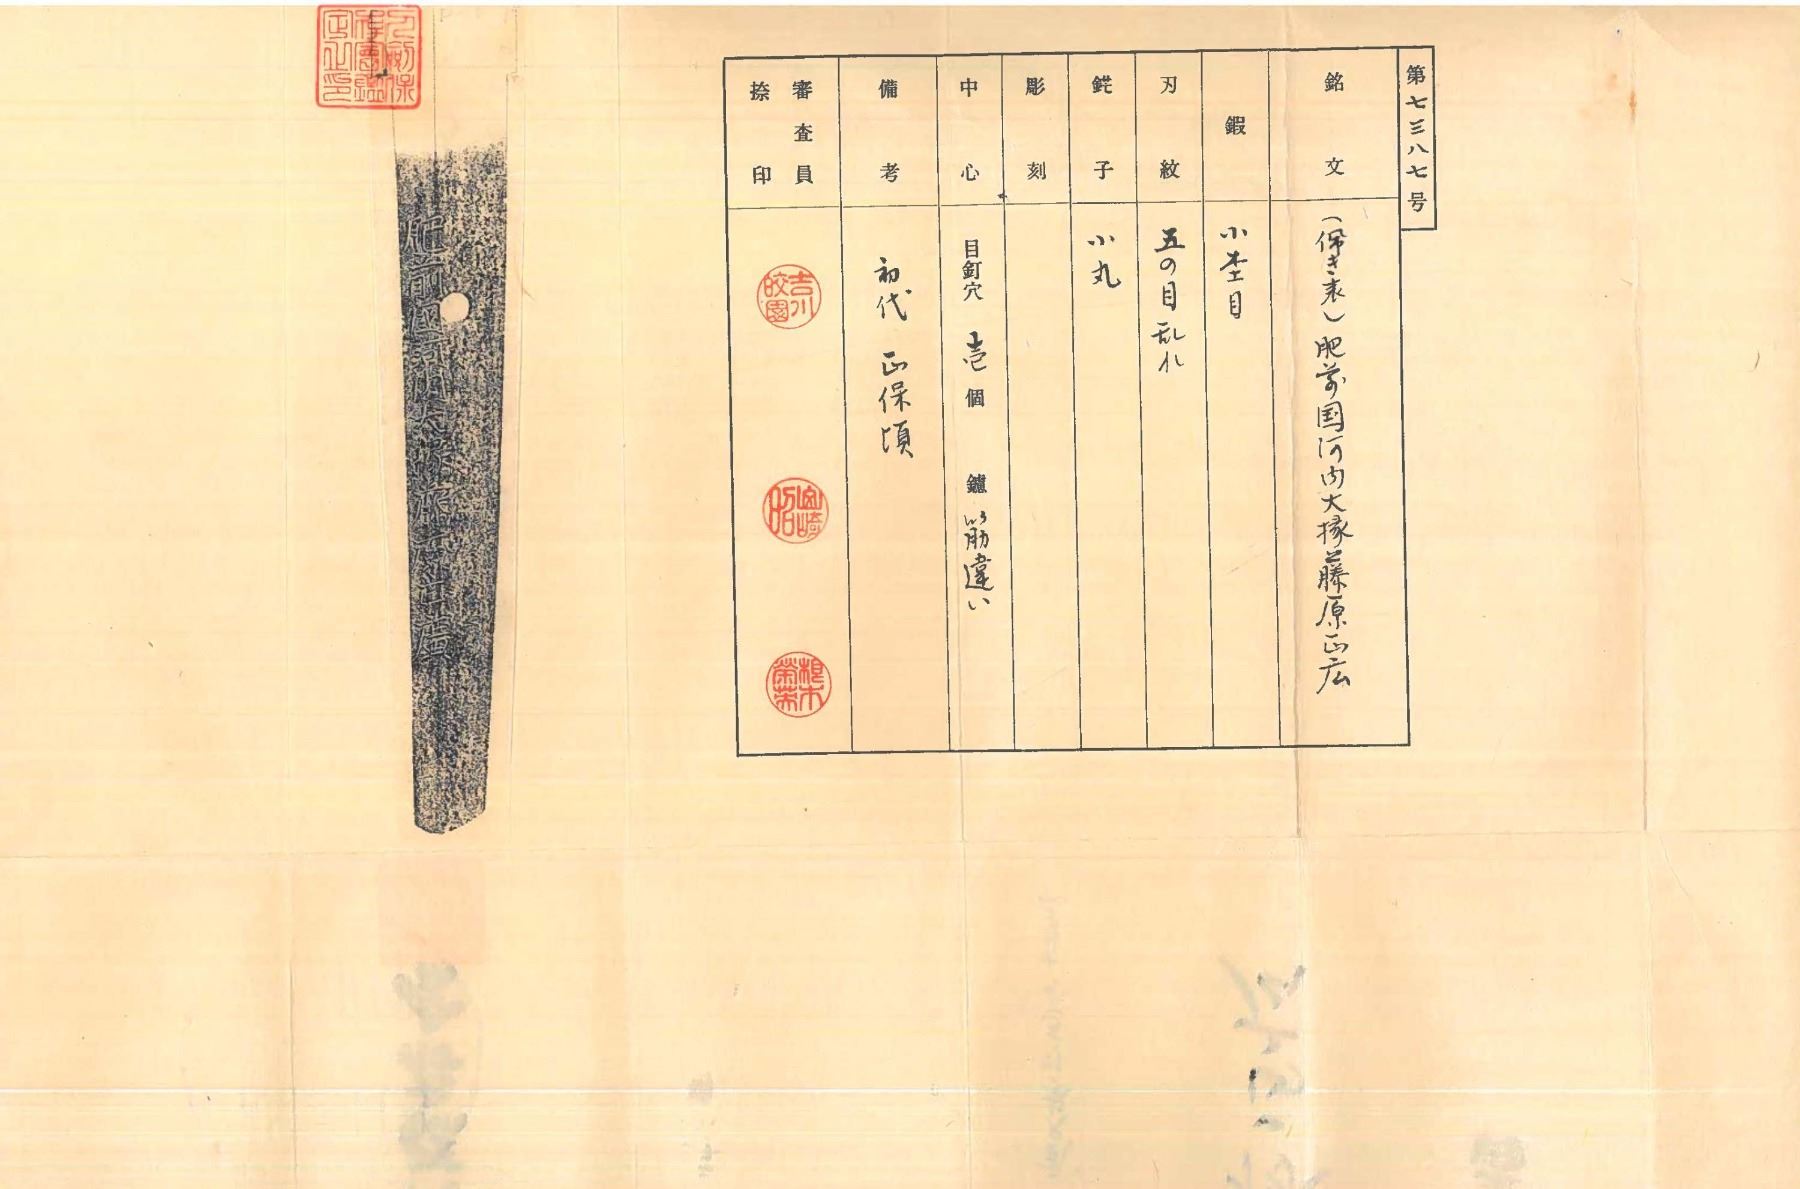 第七三八七号
銘文
(佩き表)肥前国河内大掾藤原正広
鍜
小杢目
刃紋
五の目乱れ
鋩子
小丸
彫刻
中心
目釘穴 壱個 鑢 筋違い
備考
初代 正保頃
審査員
捺印
吉川
皎園
根本